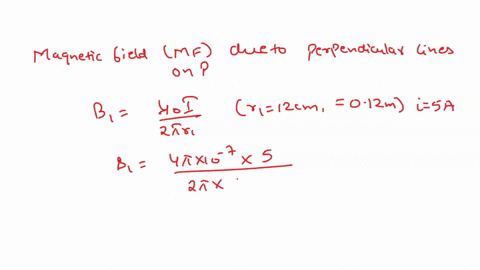 Magnetic field (MF) due to perpendicular lines
on P
B₁ = μ₀I / 2πr₁ (r₁=12cm, =0.12m) i=5A
B₁ = 4π×10⁻⁷ × 5 / 2π×